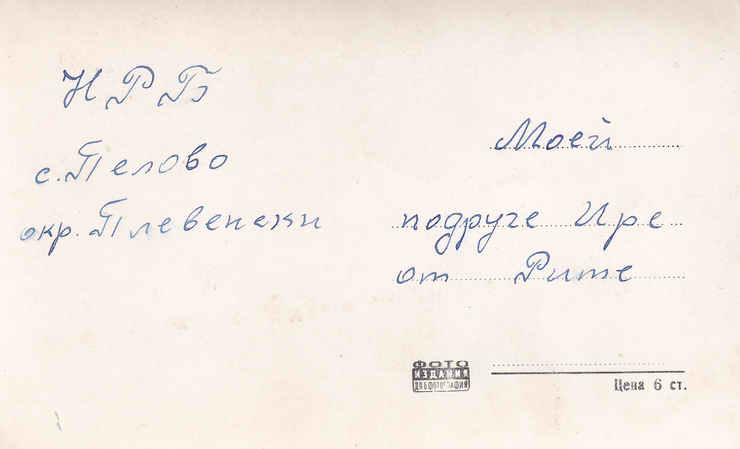 НРБ
с. Пелово
окр. Плевенски
Моей
подруге Ире
от Рите
ФОТО
ИЗДАНИЯ
ДПБФОТОГРАФИЯ
Цена 6 ст.